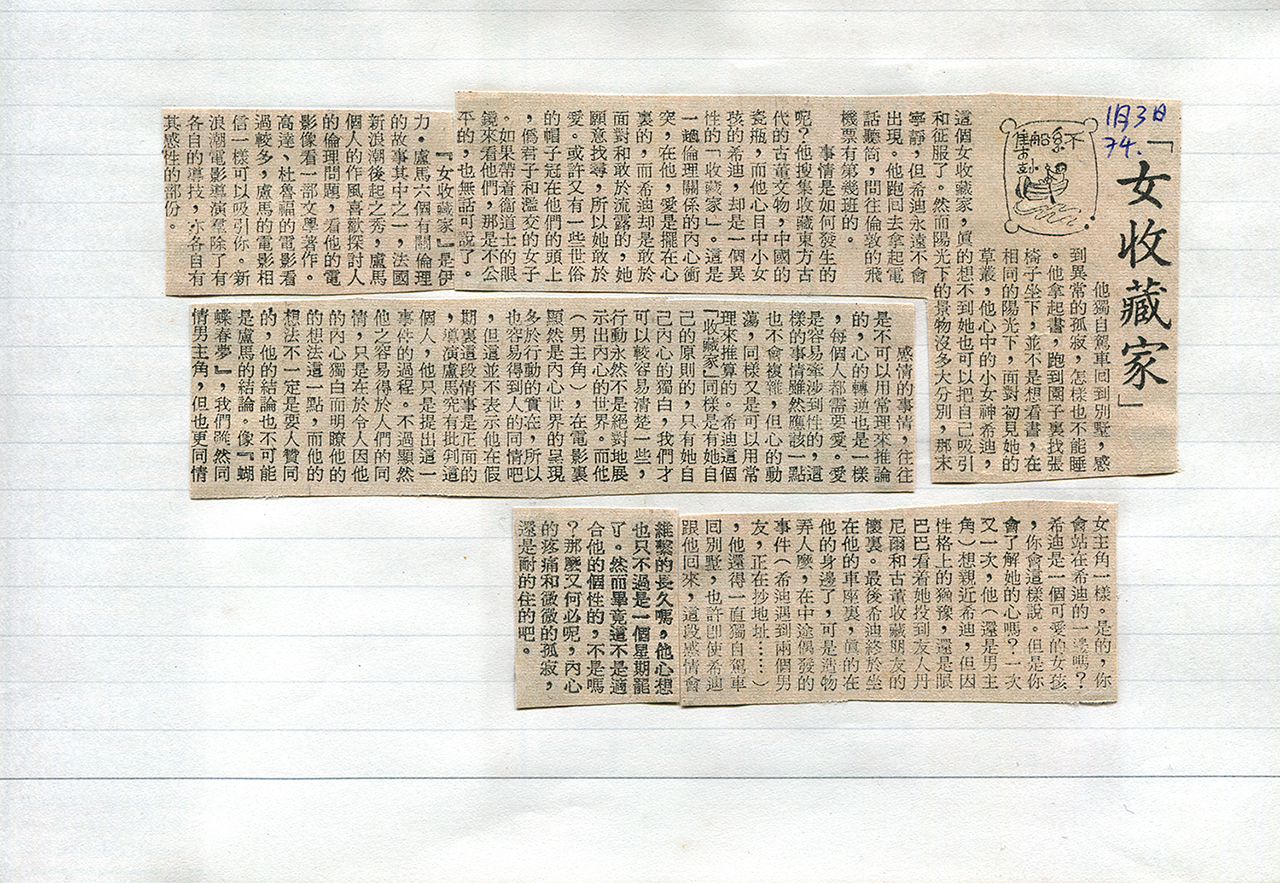 1月3日
74.
「女收藏家」
不繫船
集
他獨自駕車回到別墅，感
到異常的孤寂，怎樣也不能睡
。他拿起書，跑到園子裏找張
椅子坐下，並不是想看書，在
相同的陽光下，面對初見她的
草叢，他心中的小女神希迪，
這個女收藏家，眞的想不到她也可以把自己吸引
和征服了。然而陽光下的景物沒多大分別，那末
寧靜，但希迪永遠不會
出現。他跑回去拿起電
話聽筒，問往倫敦的飛
機票有第幾班的。
事情是如何發生的
呢？他搜集收藏東方古
代的古董文物，中國的
瓷瓶，而他心目中小女
孩的希迪，却是一個異
性的「收藏家」。這是
一趟倫理關係的內心衝
突，在他，愛是擺在心
裏的，而希迪却是敢於
面對和敢於流露的，她
願意找尋，所以她敢於
愛。或許又有一些世俗
的帽子冠在他們的頭上
，僞君子和濫交的女子
。如果帶着衞道士的眼
鏡來看他們，那是不公
平的，也無話可說了。
『女收藏家』是伊
力·盧馬六個有關倫理
的故事其中之一，法國
新浪潮後起之秀，盧馬
個人的作風喜歡探討人
的倫理問題，看他的電
影像看一部文學著作。
高達、杜魯福的電影看
過較多，盧馬的電影相
信一樣可以吸引你。新
浪潮電影導演羣除了有
各自的導技，亦各自有
其感性的部份。
感情的事情，往往
是不可以用常理來推論
的，心的轉逆也是一樣
，每個人都需要愛。愛
是容易牽涉到性的，這
樣的事情雖然應該一點
也不會複雜，但心的動
蕩，同樣又是可以用常
理來推算的。希迪這個
「收藏家」同樣是有她自
己的原則的，只有她自
己內心的獨白，我們才
可以較容易清楚一些，
行動永然不是絕對地展
示出內心的世界。而他
（男主角），在電影裏
顯然是內心世界的呈現
多於行動的實在，所以
也容易得到人的同情吧
，但這並不表示他在假
期裏這段情事是正面的
，導演盧馬究有批判這
個人，他只是提出這一
事件的過程。不過顯然
他之容易得於人們的同
情，只是在於令人因他
的內心獨白而明瞭他的
的想法這一點，而他的
想法不一定是要人贊同
的，他的結論也不可能
是盧馬的結論。像『蝴
蝶春夢』，我們雖然同
情男主角，但也更同情
女主角一樣。是的，你
會站在希迪的一邊嗎？
希迪是一個可愛的女孩
，你會這樣說。但是你
會了解她的心嗎？一次
又一次，他（還是男主
角）想親近希迪，但因
性格上的猶豫，還是眼
巴巴看着她投到友人丹
尼爾和古董收藏朋友的
懷裏。最後希迪終於坐
在他的車座裏，眞的在
他的身邊了，可是造物
弄人麼，在中途偶發的
事件（希迪遇到兩個男
友，正在抄地址……）
，他還得一直獨自駕車
回別墅，也許即使希迪
跟他回來，這段感情會
維繫的長久嗎，他心想
也只不過是一個星期罷
了。然而畢竟這不是適
合他的個性的，不是嗎
？那麼又何必呢，內心
的疼痛和微微的孤寂，
還是耐的住的吧。